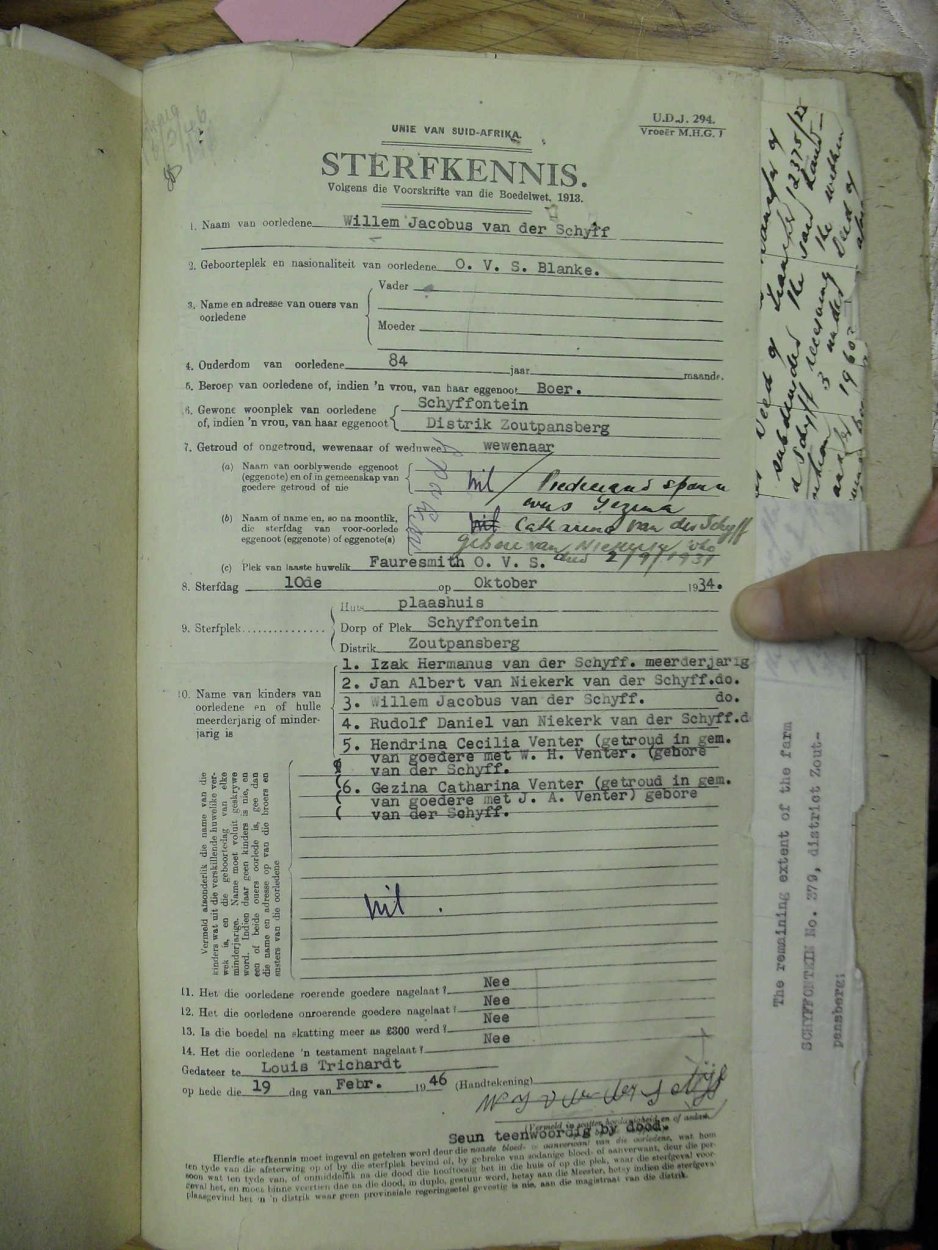 U.D.J. 294.
Vroeër M.H.G. 1
UNIE VAN SUID-AFRIKA.
STERFKENNIS.
Volgens die Voorskrifte van die Boedelwet, 1913.
1. Naam van oorledene Willem Jacobus van der Schyff
2. Geboorteplek en nasionaliteit van oorledene O. V. S. Blanke.
3. Name en adresse van ouers van oorledene
Vader
Moeder
4. Ouderdom van oorledene 84 jaar maande.
5. Beroep van oorledene of, indien 'n vrou, van haar eggenoot Boer.
6. Gewone woonplek van oorledene Schyffontein
of, indien 'n vrou, van haar eggenoot Distrik Zoutpansberg
7. Getroud of ongetroud, wewenaar of weduwee wewenaar
(a) Naam van oorblywende eggenoot
(eggenote) en of in gemeenskap van
goedere getroud of nie
nil Predeceased spouse
was Gezina
(b) Naam of name en, so na moontlik,
die sterfdag van voor-oorlede
eggenoot (eggenote) of eggenote(s)
nil Catharina van der Schyff
gebore van Niekerk who
died 2/9/1931
(c) Plek van laaste huwelik Fauresmith O. V. S.
8. Sterfdag 10de op Oktober 1934.
9. Sterfplek
Huis plaashuis
Dorp of Plek Schyffontein
Distrik Zoutpansberg
10. Name van kinders van
oorledene en of hulle
meerderjarig of minder-
jarig is
1. Izak Hermanus van der Schyff. meerderjarig
2. Jan Albert van Niekerk van der Schyff.do.
3. Willem Jacobus van der Schyff. do.
4. Rudolf Daniel van Niekerk van der Schyff.d
5. Hendrina Cecilia Venter (getroud in gem.
van goedere met W. H. Venter. (gebore
van der Schyff.
6. Gezina Catharina Venter (getroud in gem.
van goedere met J. A. Venter) gebore
van der Schyff.
Vermeld afsonderlik die name van die
kinders wat uit die verskillende huwelike ver-
wek is, en die geboortedag van elke
minderjarige. Name moet voluit geskrywe
word. Indien daar geen kinders is nie, en
een of beide ouers oorlede is, gee dan
die name en adresse op van die broers en
susters van die oorledene
nil.
11. Het die oorledene roerende goedere nagelaat? Nee
12. Het die oorledene onroerende goedere nagelaat? Nee
13. Is die boedel na skatting meer as £300 werd? Nee
14. Het die oorledene 'n testament nagelaat? Nee
Gedateer te Louis Trichardt
op hede die 19 dag van Febr. 1946 (Handtekening) W J v der Schyff
Seun teenwoordig by dood.
Hierdie sterfkennis moet ingevul en geteken word deur die naaste bloed- of aanverwant van die oorledene, wat hom
ten tyde van die afsterwing op of by die sterfplek bevind of, by gebreke van sodanige bloed- of aanverwant, deur die per-
soon wat ten tyde van, of onmiddellik na die dood die hooftoesig het in die huis of op die plek, waar die sterfgeval voor-
geval het, en moet binne veertien dae na die dood, in duplo, gestuur word, hetsy aan die Meester, hetsy indien die sterfgeval
plaasgevind het in 'n distrik waar geen provinsiale regeringsetel gevestig is nie, aan die magistraat van die distrik.
The remaining extent of the farm
SCHYFFONTEIN No. 379, district Zout-
pansberg;